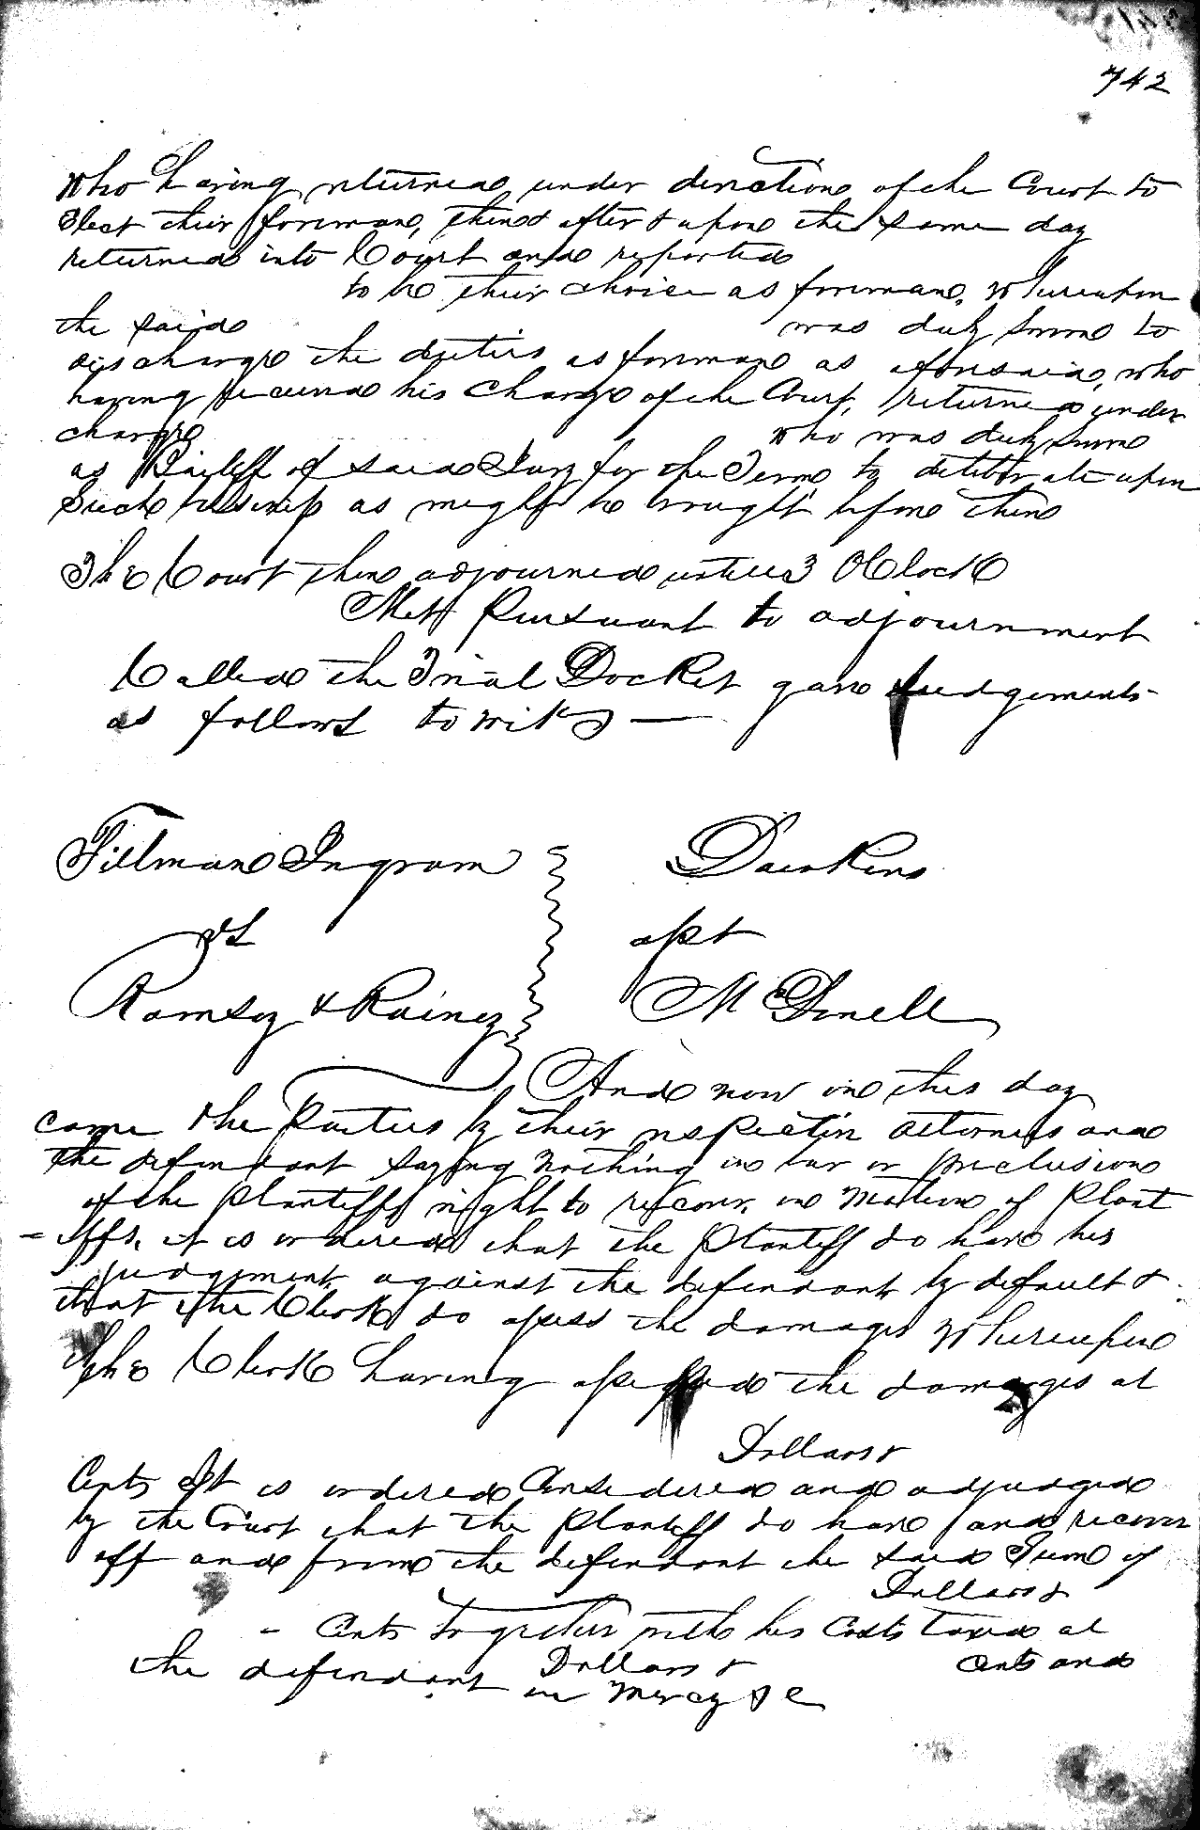 742
Who having returned under direction of the Court to
Elect their foreman, then & after & upon the same day
returned into Court and reported
to be their choice as foreman, Whereupon
the said was duly sworn to
discharge the duties as foreman as aforesaid, who
having received his charge of the Court, returned under
charge who was duly sworn
as Bailiff of said Jury for the Term to deliberate upon
Such business as might be brought before them
The Court then adjourned until 3 OClock
Met Pursuant to adjournment
Called the Trial Docket gave Judgements
as follows towit —
Tillman Ingram Dawkins
vs apt
Ramsey & Rainey McDonell
And now on this day
came the Parties by their respective attorneys and
the defendant saying nothing in bar or preclusion
of the Plantiffs right to recover, on Motion of Plant
-iffs, it is ordered that the Plantiff do have his
judgement against the defendant by default &
that the Clerk do assess the damages Whereupon
The Clerk having assessed the damages at
Dollars &
Cents It is ordered Considered and adjudged
by the Court that the Plantiff do have and recover
off and from the defendant the said Sum of
Dollars &
- Cents Together with his Costs Taxed at
Dollars & Cents and
the defendant in Mercy & C